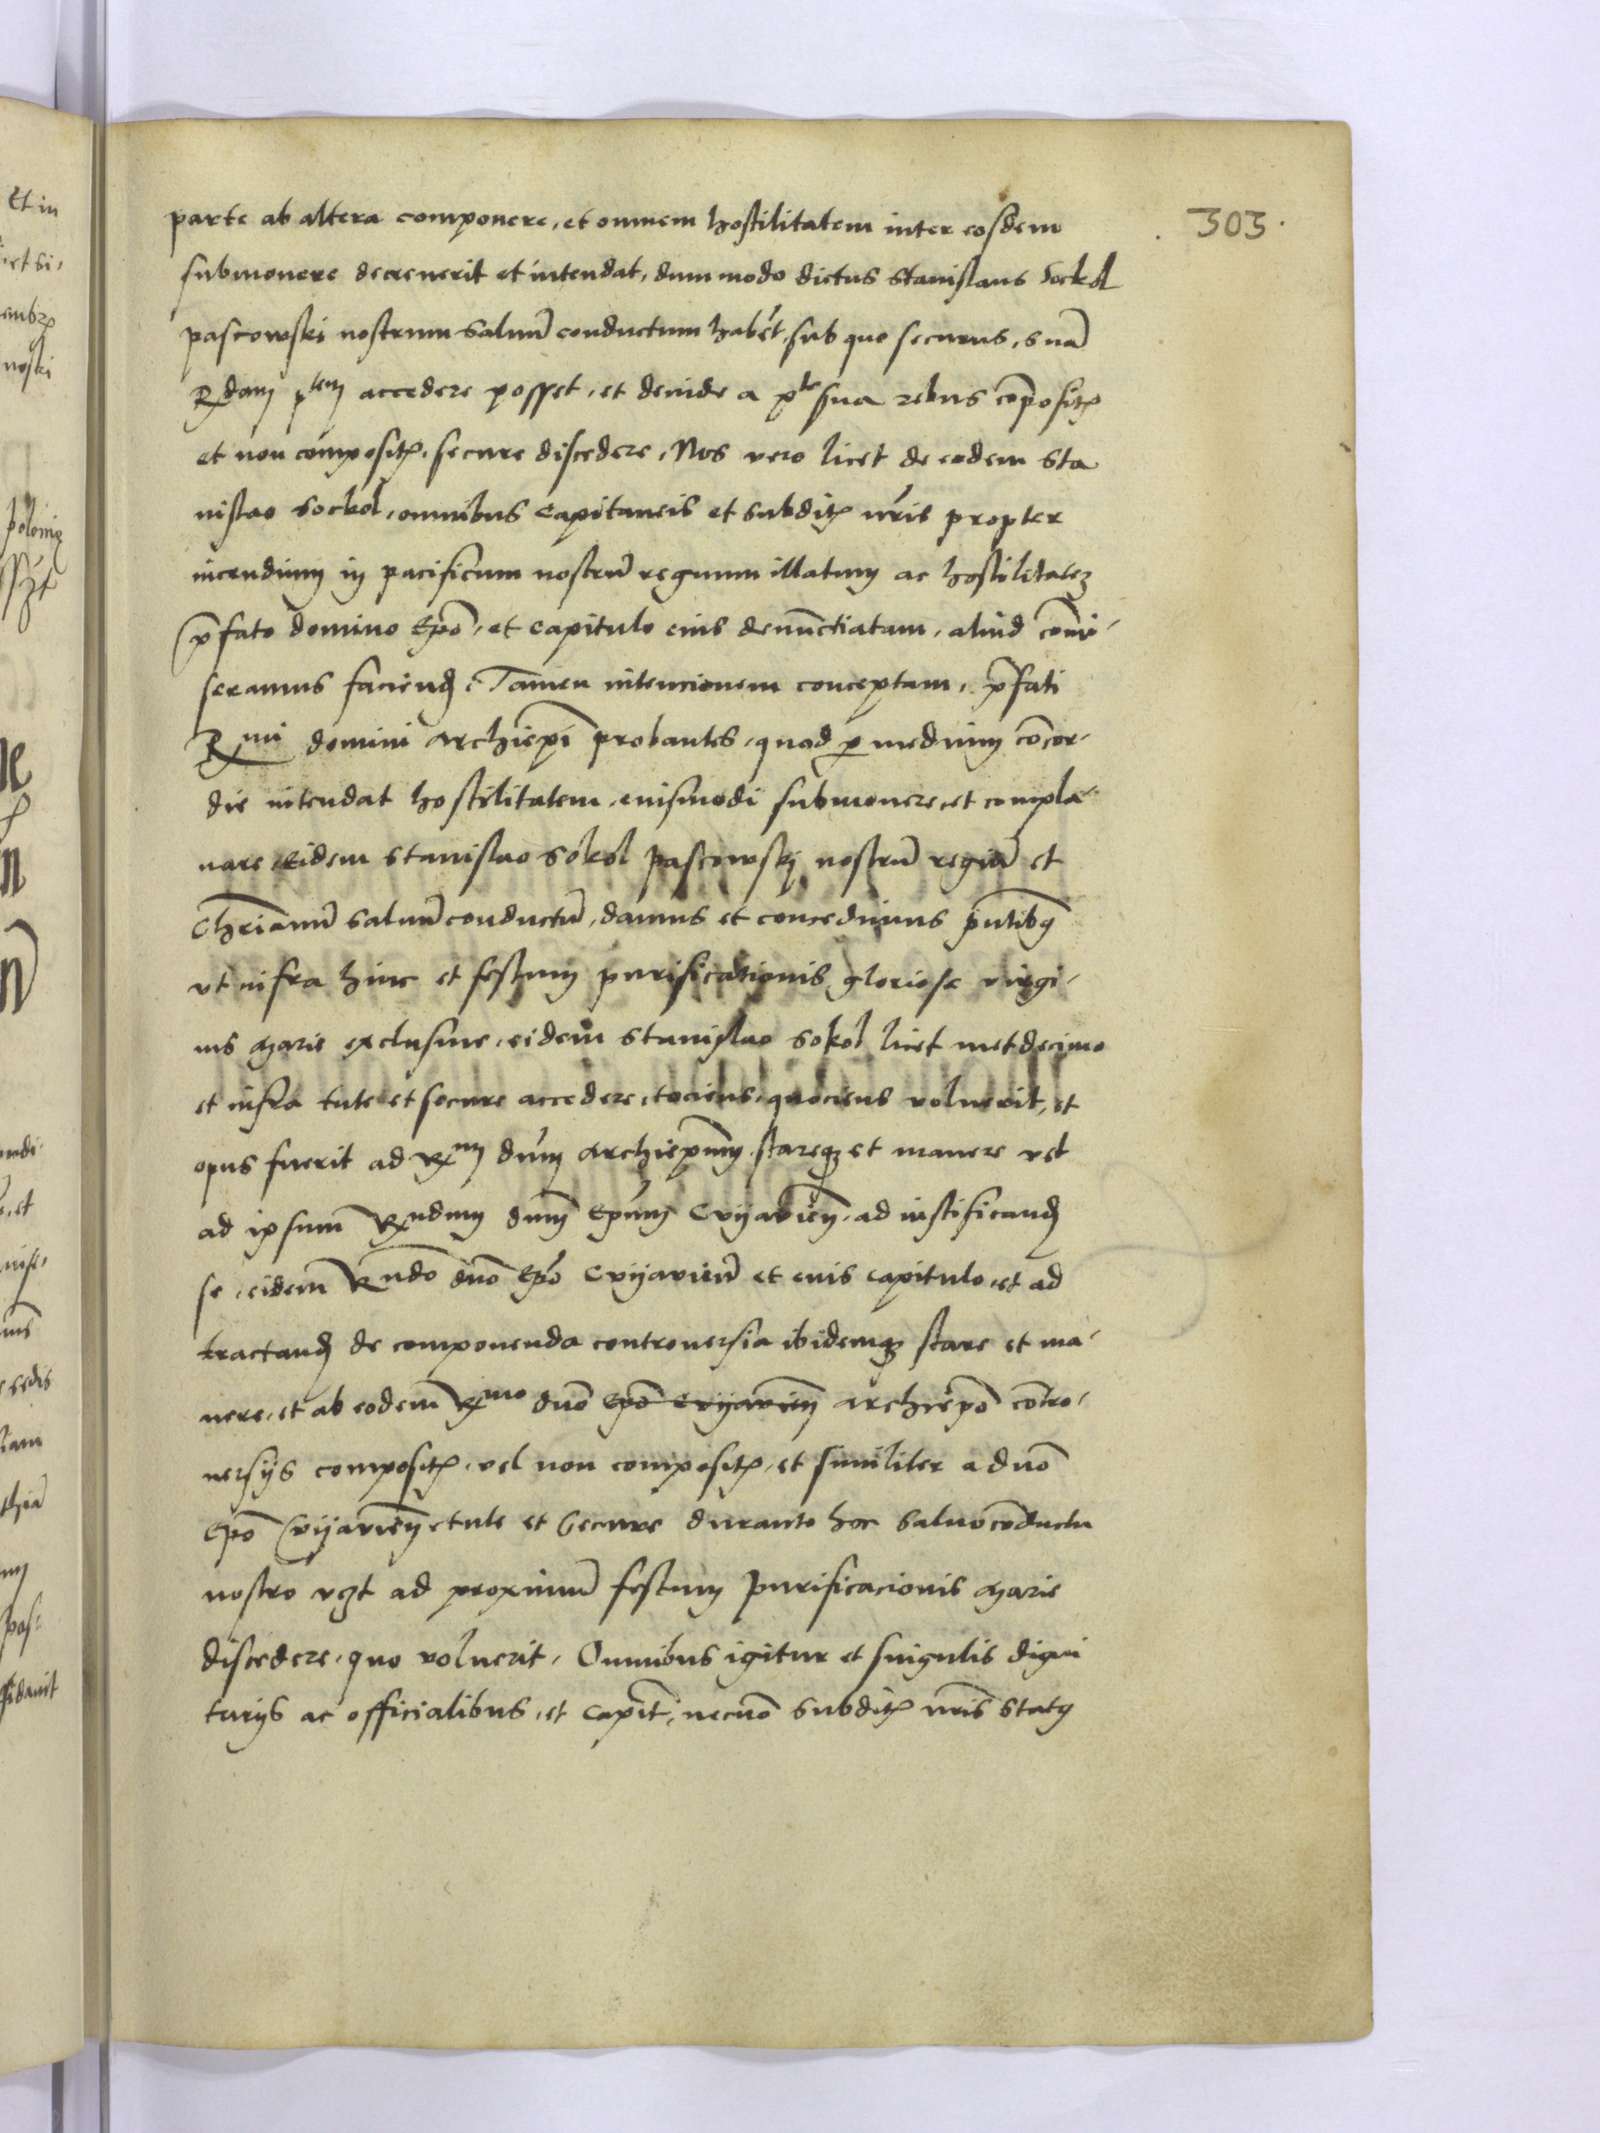 303.
parte ab altera componere, et omnem hostilitatem inter eosdem
submonere decreuerit et intendat, dum modo dictus Stanislaus Sockol
pascowski nostrum saluū conductum habe͂t, sub quo securus, suā
Rdam ptem accedere posset, et deinde a pte sua rebus cōpositꝭ
et non compositꝭ, secure discedere, Nos vero licet de eodem Sta
nislao Sockol, omnibus Capitaneis et subditꝭ nr̄is propter
incendium in pacificum nostrū regnum illatum ac hostilitatez
p̄fato domino Ep̄o, et capitulo eius denūnctiatam, aliud cōmi-
seramus faciend̄, Tamen intencionem conceptam, p̄fati
Rmi domini Archiep̄i probantes, quod ꝑ medium cōcor-
die intendat hostilitatem, eiusmodi submonere, et compla-
nare, Eidem Stanislao Sokol pascowskj nostrū regiū et
Chrīanū saluū conductū, damus et concedimus p̄ntibꝰ
vt infra hinc et festum purificationis gloriose virgi-
nis Marie exclusiue, eidem Stanislao Sokol licet met decimo
et infra tute et secure accedere, tociens, quociens voluerit, et
opus fuerit ad Rmm dn̄m Archiep̄um, stareqꝫ et manere vel
ad ipsum Rndum dn̄m Ep̄um Cuijavien̄, ad iustificand̄
se, eidem Rndo dn̄o Ep̄o Cuijavieñ et euis capitulo, et ad
tractand̄ de componenda controuersia ibidemqꝫ stare et ma-
nere, et ab eodem Rmo dn̄o Ep̄o Cuijavien̄ archiep̄o cōtro-
uersijs compositꝭ, vel non compositꝭ, et similiter a dn̄o
Ep̄o Cuijavien̄, tute et secure durante hoc saluocōductu
nostro vsqꝫ ad proximū festum purificacionis Marie
discedere, quo voluerit, Omnibus igitur et singulis digni
tarijs ac officialibus, et capit̄, necnō subditꝭ nr̄is statꝰ